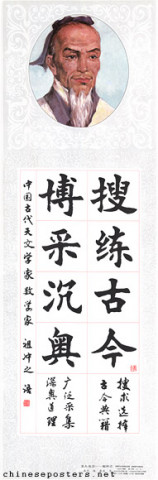 搜练古今
博采沉奥
搜求选择
古今典籍
广泛采集
深奥道理
中国古代天文学家 数学家 祖冲之 语
chineseposters.net